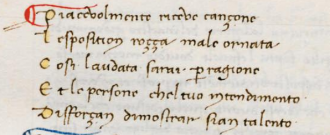 Piacevolmente riceve cançone
Lesposition roçça male ornata
Cosi laudata sarai · ꝑ ragione
Et le persone chel tuo intendimento
Disforçan dimostrar sian talento ·